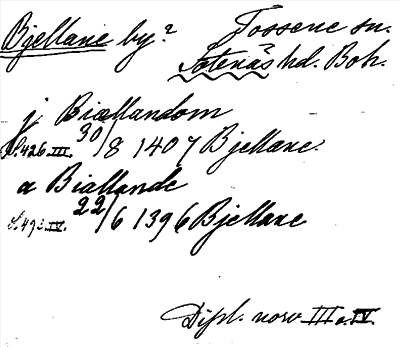 Bjellane by? Tossene sn.
Sotenäs hd. Boh.
j Biællandom
S. 426. III. 30/8 1407 Bjellane.
a Biallande
S. 493. IV. 22/6 1396 Bjellane
Dipl. norv III o. IV.